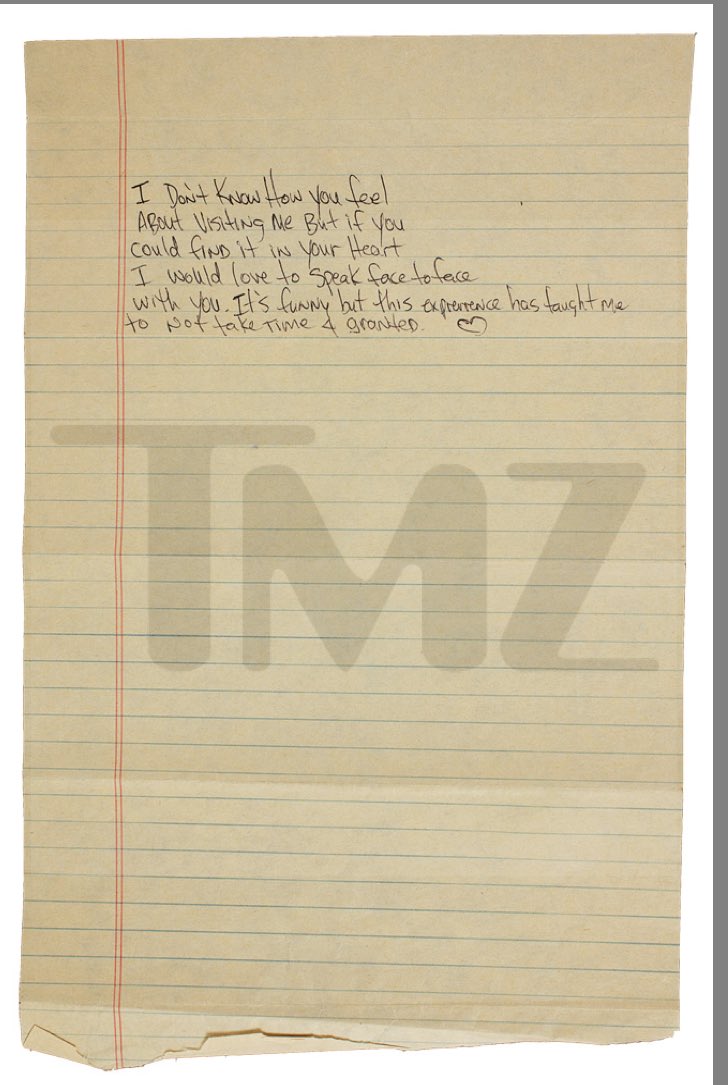 I Don't Know How you feel
About Visiting me But if you
could find it in your Heart
I would love to speak face to face
with you. It's funny but this exprerrence has taught me
to Not take Time 4 granted. ♡
TMZ